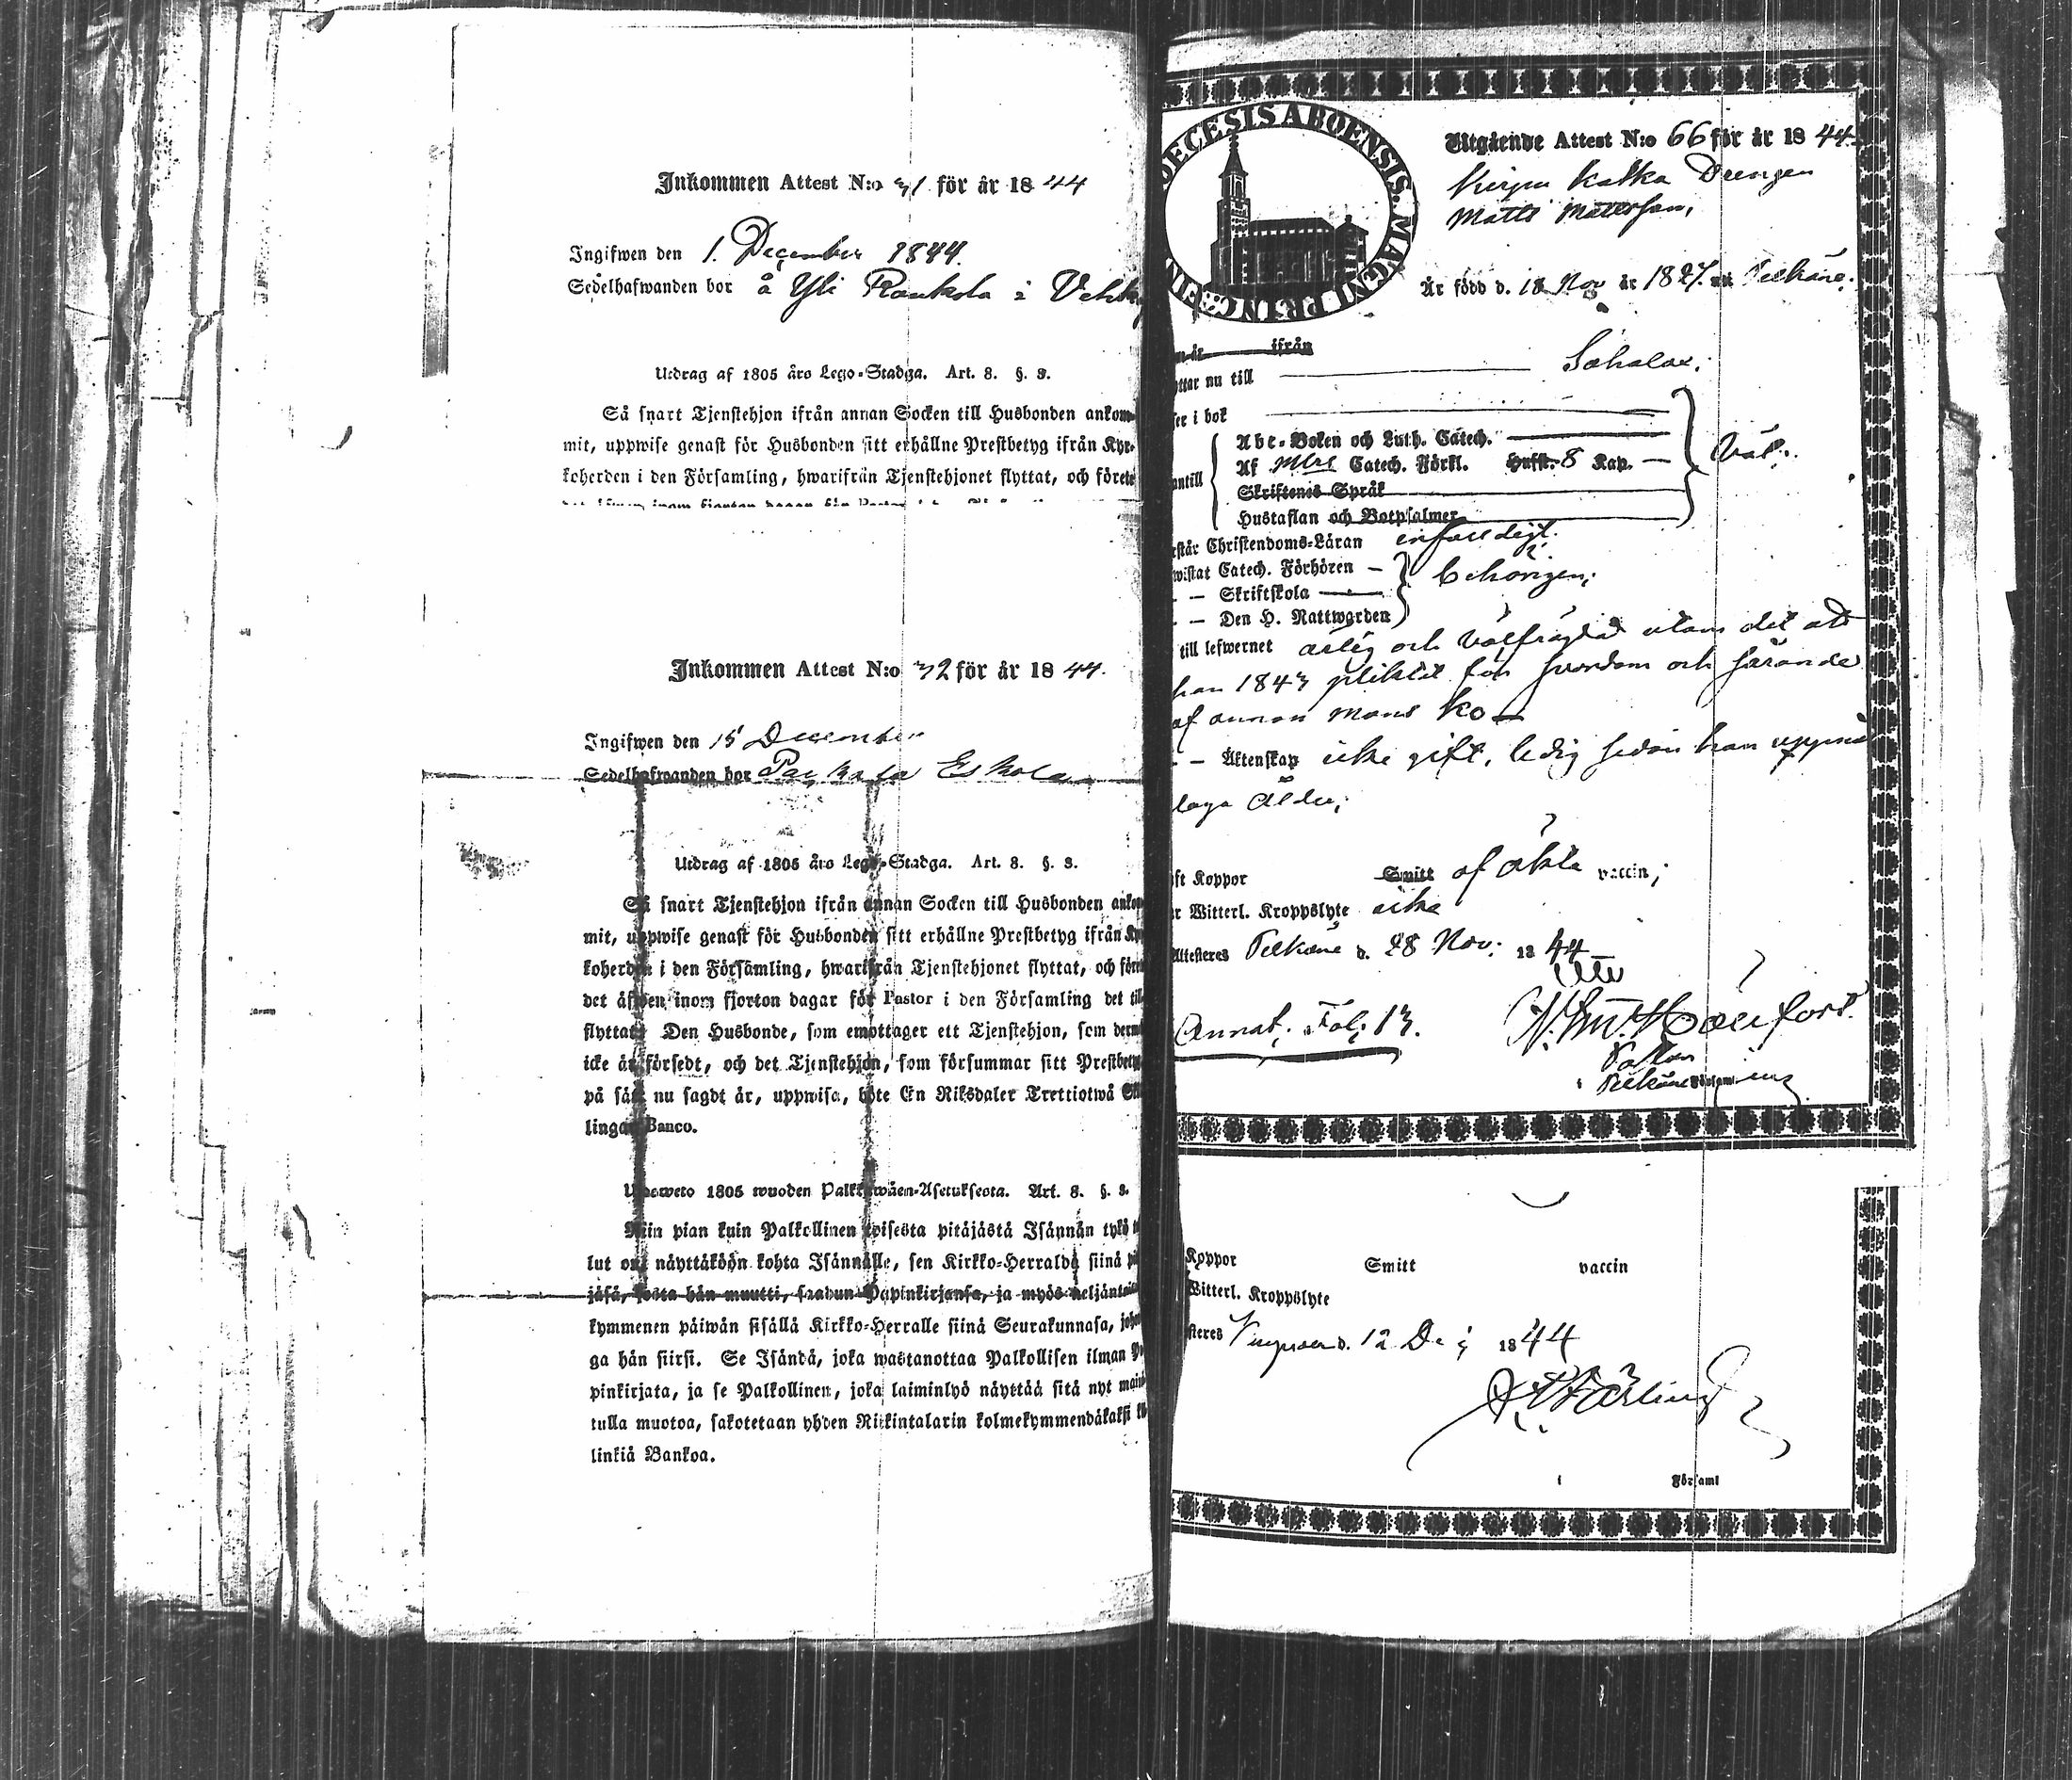 Inkommen Attest N:o 31 för år 1844
Ingifwen den 1. December 1844.
Sedelhafwanden bor å Yli Raukola i
Utdrag af 1805 års Lego-Stadga. Art. 8. §. 3.
Så snart Tjenstehjon ifrån annan Socken till Husbonden ankom-
mit, uppwise genast för Husbonden sitt erhållne Prestbetyg ifrån Kyr-
koherden i den Församling, hwarifrån Tjenstehjonet flyttat, och förete
Inkommen Attest N:o 32 för år 1844.
Ingifwen den 15 December
Sedelhafwanden bor Eskola
Utdrag af 1805 års Lego-Stadga. Art. 8. §. 3.
Så snart Tjenstehjon ifrån annan Socken till Husbonden ankom
mit, uppwise genast för Husbonden sitt erhållne Prestbetyg ifrån Ky
koherden i den Församling, hwarifrån Tjenstehjonet flyttat, och före
det äfwen inom fjorton dagar för Pastor i den Församling det til
flyttat. Den Husbonde, som emottager ett Tjenstehjon, som derm
icke är försedt, och det Tjenstehjon, som försummar sitt Prestbety
på sätt nu sagdt är, uppwisa, böte En Riksdaler Trettiotwå Sk
lingar Banco.
Ulosweto 1805 wuoden Palkkawäen-Asetuksesta. Art. 8. §. 3.
Niin pian kuin Palkollinen toisesta pitäjästä Isännän tykö t
lut on, näyttäköön kohta Isännälle, sen Kirkko-Herralda siinä pi
jäsä, kosta hän muutti, saadun Papinkirjansa, ja myös neljäntoist
kymmenen päiwän sisällä Kirkko-Herralle siinä Seurakunnasa, joho
ga hän siirsi. Se Isändä, joka wastanottaa Palkollisen ilman Pa
pinkirjata, ja se Palkollinen, joka laiminlyö näyttää sitä nyt main
tulla muotoa, sakotetaan yhden Riikintalarin kolmekymmendäkaksi ki
linkiä Bankoa.
DECESIS ABOENSIS. MAGNI PRINC. FIN
Utgående Attest N:o 66 för år 1844.
Drengen
Matts Mattsson,
Är född d. 18 Nov år 1827. Pelkäne.
är ifrån
ttar nu till Sahalax.
ser i bok
Abc-Boken och Luth. Catech.
Af Catech. Förkl. Husst. 8 Kap. Väl.
antill
Skriftenes Språk
Hustaflan och Botpsalmer
rstår Christendoms-Läran enfaldigt.
wistat Catech. Förhören behörigen;
Skriftskola
Den H. Nattwarden
till lefwernet ärlig och välfrägdad utom det att
han 1843 pliktat för och
af annan mans ko
Äktenskap icke gift, ledig sedan han uppnått
laga ålder;
ft Koppor Smitt af äkta vaccin;
r Witterl. Kroppslyte icke
Attesteres Pelkäne d. 28 Nov: 1844
Annot. Fol: 13.
Pastor
i Pelkäne Församling
Koppor Smitt vaccin
Witterl. Kroppslyte
steres d. 12 Dec 1844
i Församl